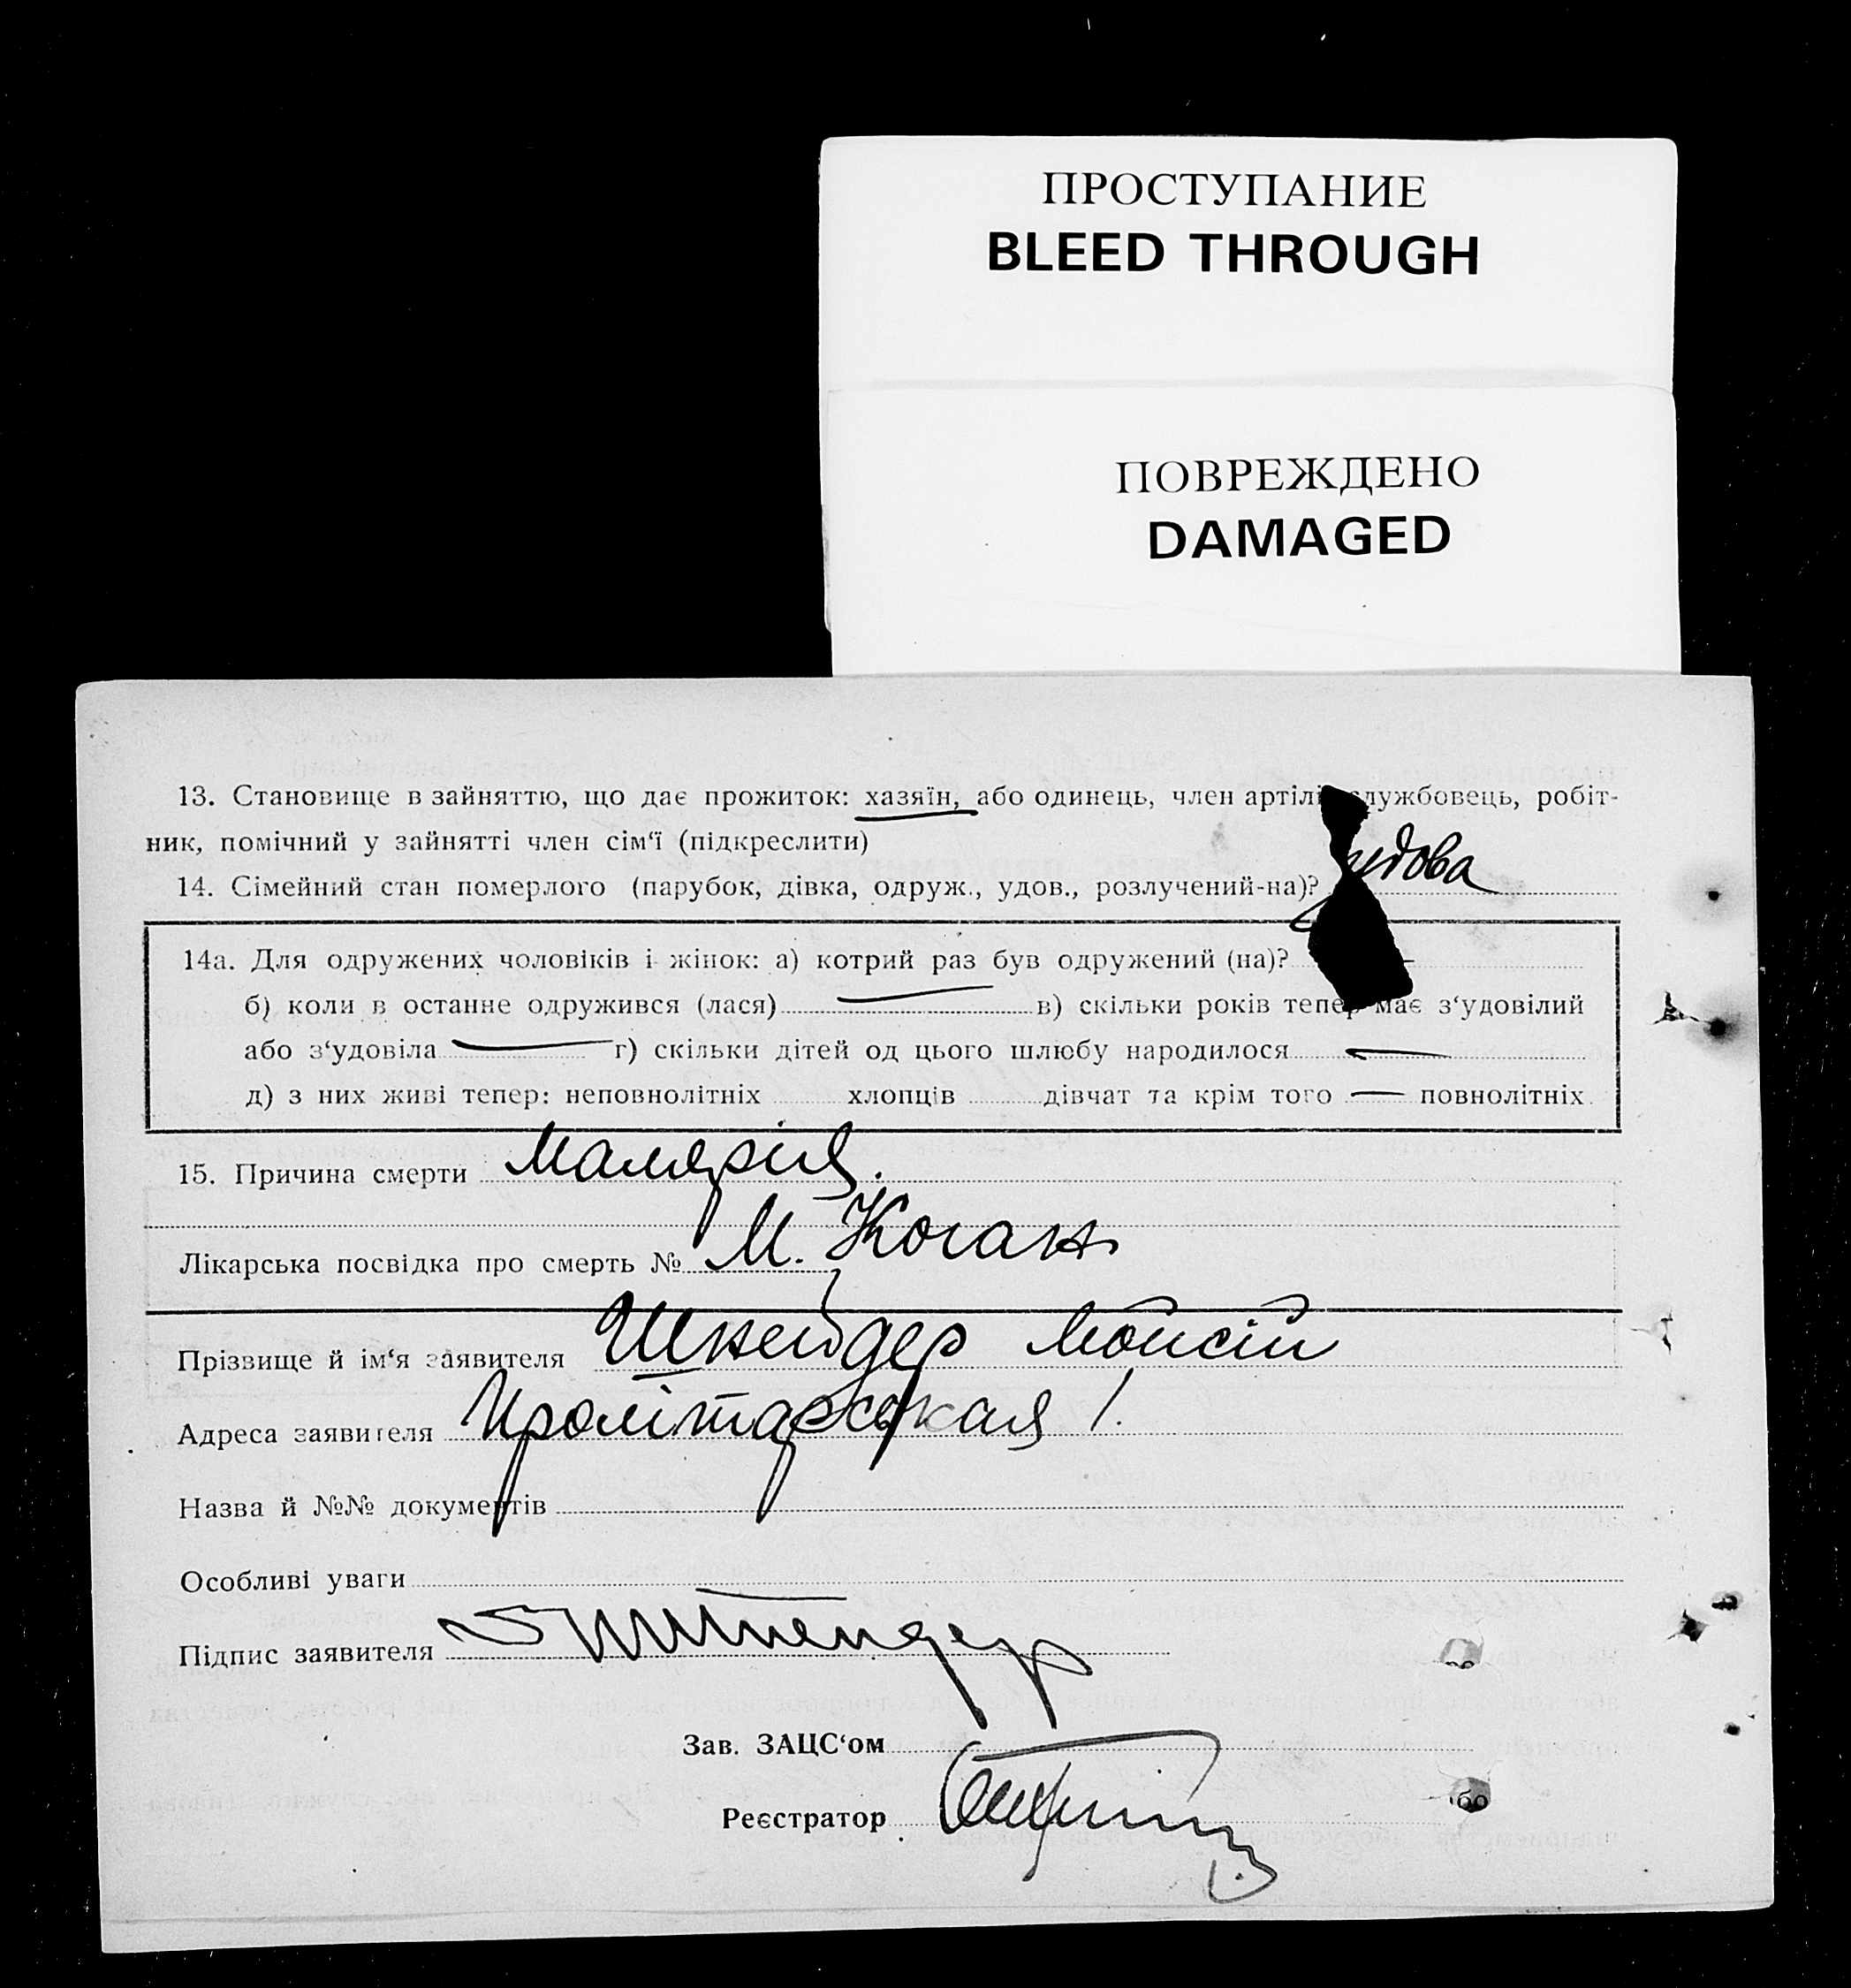 ПРОСТУПАНИЕ
BLEED THROUGH
ПОВРЕЖДЕНО
DAMAGED
13. Становище в зайняттю, що дає прожиток: хазяїн, або одинець, член артілі службовець, робіт-
ник, помічний у зайнятті член сім‘ї (підкреслити)
14. Сімейний стан померлого (парубок, дівка, одруж., удов., розлучений-на)? удова
14а. Для одружених чоловіків і жінок: а) котрий раз був одружений (на)? —
б) коли в останне одружився (лася) — в) скільки років тепер має з‘удовілий
або з‘удовіла — г) скільки дітей од цього шлюбу народилося —
д) з них живі тепер: неповнолітніх хлопців дівчат та крім того — повнолітніх
15. Причина смерти Малярія.
Лікарська посвідка про смерть № М. Коган
Прізвище й ім‘я заявителя Шнейдер Мойсій
Адреса заявителя Пролітарськая 1.
Назва й №№ документів
Особливі уваги
Підпис заявителя
Зав. ЗАЦС‘ом
Реєстратор